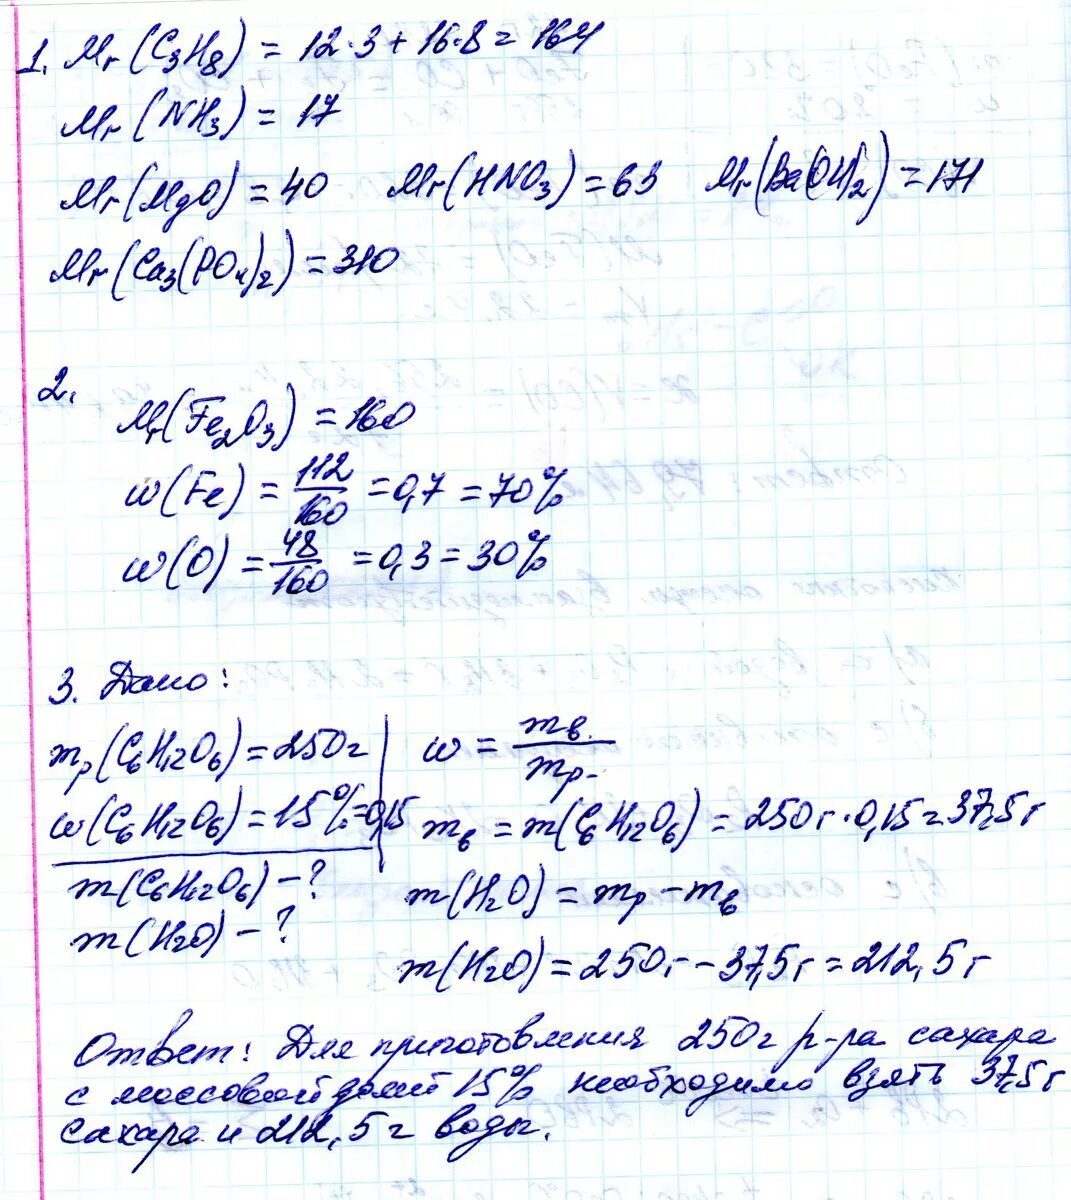 1. Mr(C3H8) = 12·3 + 16·8 = 164
Mr(NH3) = 17
Mr(MgO) = 40 Mr(HNO3) = 63 Mr(Ba(OH)2) = 171
Mr(Ca3(PO4)2) = 310
2.
Mr(Fe2O3) = 160
w(Fe) = 112/160 = 0,7 = 70%
w(O) = 48/160 = 0,3 = 30%
3. Дано:
mр(C6H12O6) = 250г w = mв./mр-
w(C6H12O6) = 15% = 0,15 mв = m(C6H12O6) = 250г·0,15 = 37,5г
m(C6H12O6) – ? m(H2O) = mр – mв
m(H2O) – ?
m(H2O) = 250г – 37,5г = 212,5г
Ответ: Для приготовления 250г р-ра сахара
с массовой долей 15% необходимо взять 37,5г
сахара и 212,5г воды.